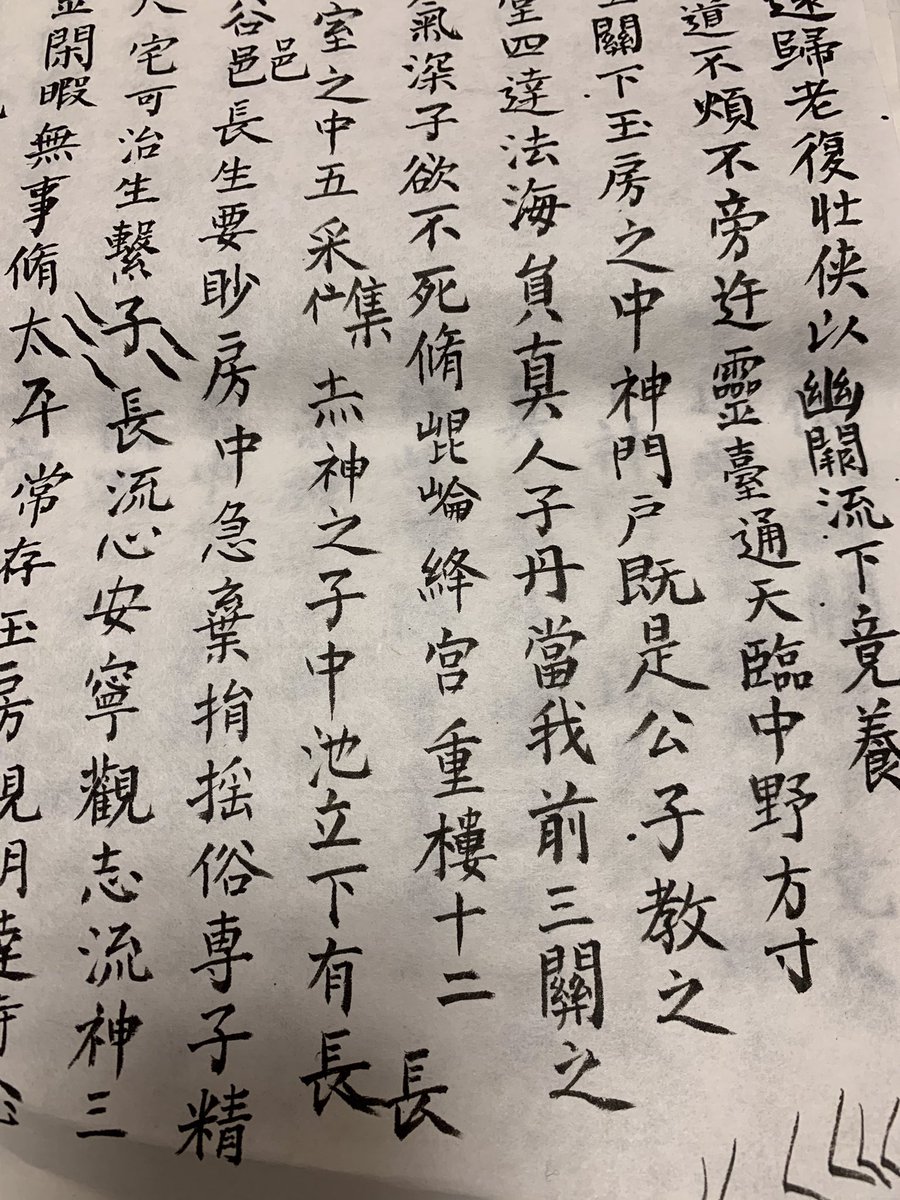 遠歸老復壯俠以幽闕流下竟養
道不煩不旁迕靈臺通天臨中野方寸
關下玉房之中神門戶既是公子教之
堂四達法海員真人子丹當我前三關之
氣深子欲不死脩崐崘絳宮重樓十二
長
室之中五采集
赤神之子中池立下有長
谷邑邑長生要眇房中急棄捐搖俗専子精
宅可治生繫子長流心安寧觀志流神三
閑暇無事脩太平常存玉房